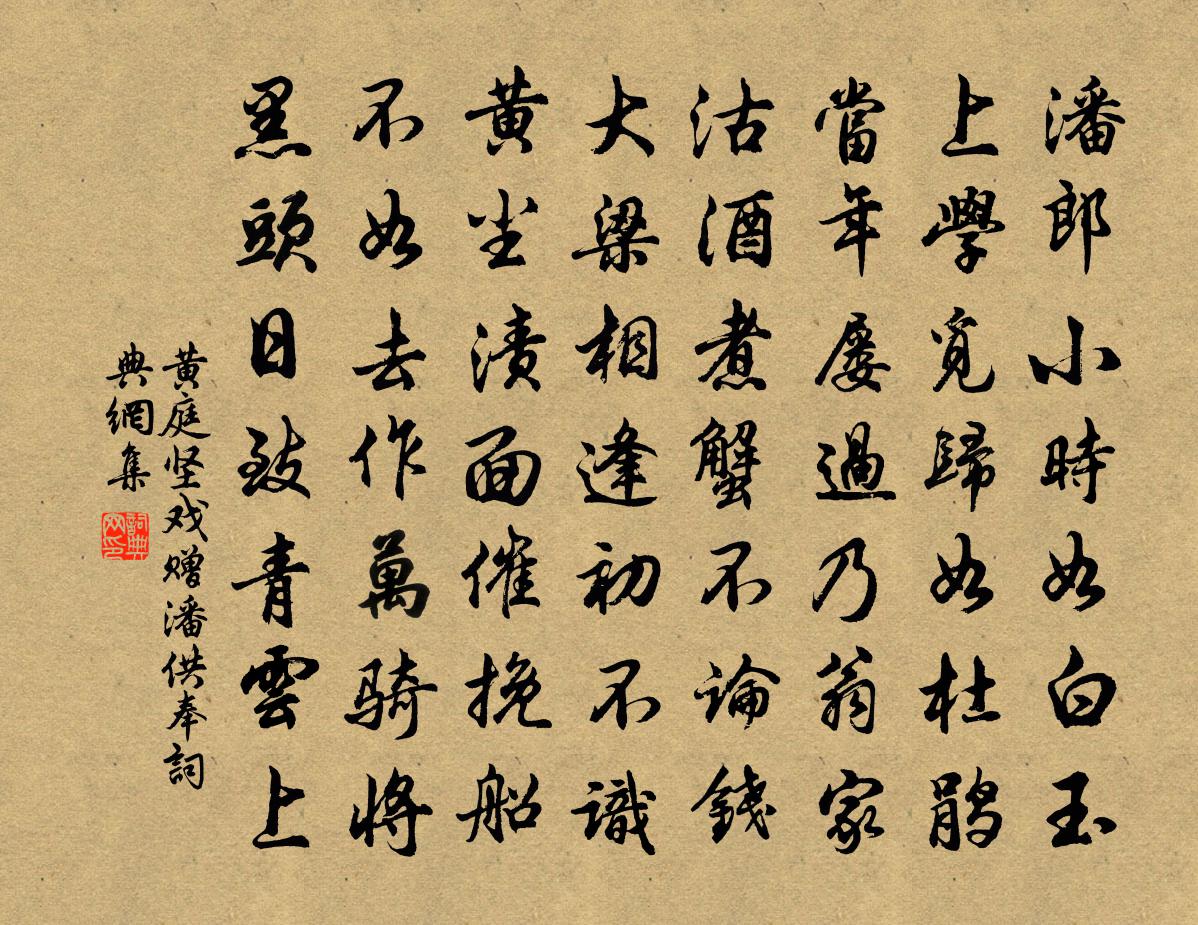 潘郎小時如白玉
上學覓歸如杜鹃
當年屢過乃翁家
沽酒煮蟹不論錢
大梁相逢初不識
黄尘漬面催挽船
不如去作萬騎將
黑頭日致青雲上
黄庭坚戏赠潘供奉詞
典網集
詞典
网印